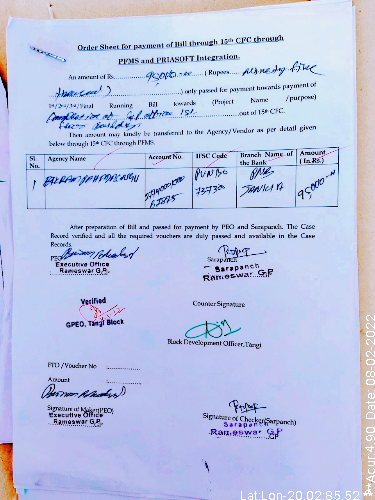 Order Sheet for payment of Bill through 15th CFC through
PFMS and PRIASOFT Integration.
An amount of Rs. 95,000=00 ( Rupees Ninety Five
thousand ) only passed for payment towards payment of
1st/2nd/3rd/Final Running Bill towards (Project Name /purpose)
Completion of G.P. office out of 15th CFC.
Building
Then amount may kindly be transferred to the Agency/Vendor as per detail given
below through 15th CFC through PFMS.
Sl. No. Agency Name Account No. IFSC Code Branch Name of the Bank Amount ( In.RS.)
1 PUNB0 PNB 95,000=00
737300 JANKIA
After preparation of Bill and passed for payment by PEO and Sarapanch. The Case
Record verified and all the required vouchers are duly passed and available in the Case
Records.
PEO Sarapanch
Executive Office Sarapanch
Rameswar G.P. Rameswar G.P
Verified Counter Signature
GPEO, Tangi Block
Block Development Officer, Tangi
PTO /Voucher No
Amount
Signature of Maker(PEO) Signature of Checker(Sarpanch)
Executive Office Sarapanch
Rameswar G.P. Rameswar G.P
Lat:Lon-20.02:85.52
**Acur-4.90 Date: 08-02-2022